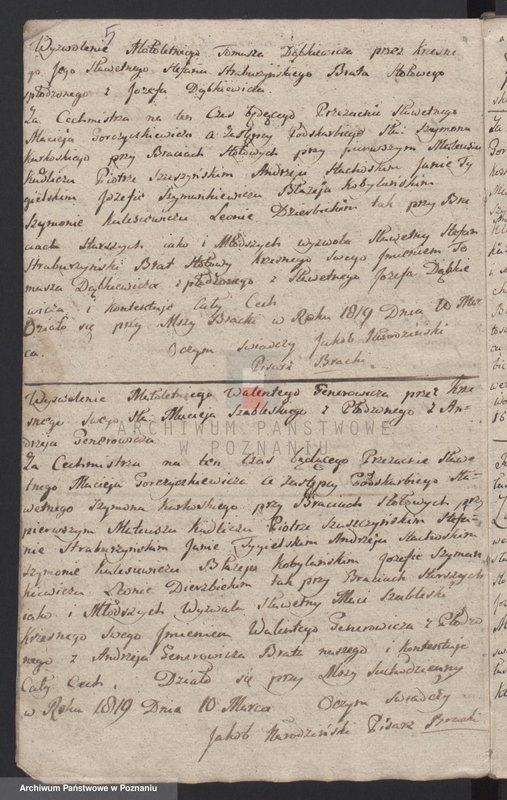 5
Wyzwolenie Małoletnego Tomasza Dąbkiewicza przez Krzesne
go Jego Sławetnego Stefana Straburzyńskiego Brata Stołowego
spłodzonego z Jozefa Dąbkiewicza.
Za Cechmistrza na ten Czas będącego Przezacnie Sławetnego
Macieja Gorczyckiewicza a Zastępcy Podskarbiego Sła: Szymona
Kurkoskiego przy Braciach Stołowych przy pierwszym Mateuszu
Kudliczu Piotrze Szeszyńskim Andrzeju Stachowskim Janie Ty
gielskim Jozefie Szymunkiewiczu Błażeju Kobylańskim
Szymonie Kulesiewiczu Leonie Dzierbickim tak przy Bra
ciach Starszych iako i Młodszych wyzwola Sławetny Stefan
Straburzyński Brat Stołowy krzesnego Swego Jmieniem To
masza Dąbkiewicza z płodzonego z Sławetnego Jozefa Dąbkie
wicza i kontentuje Cały Cech
Działo się przy Mszy Bracki w Roku 1819 Dnia 10 Mar
ca. Oczym swiadczy Jakob Narodziński
Pisarz Bracki
Wyzwolenie Małoletnego Walentego Generowicza przez Krze
snego Swego Sła: Macieja Szableskiego z Płodzonego z An-
drzeja Generowicza
ARCHIWUM PAŃSTWOWE
W POZNANIU
Za Cechmistrza na ten Czas będącego Przezacnie Sławe
tnego Macieja Gorczyckiewicza a Zastępcy Podskarbiego Sła-
wetnego Szymona Kurkoskiego przy Braciach Stołowych przy
pierwszym Mateuszu Kudliczu Piotrze Szuszczyńskim Stefa-
nie Straburzyńskim Janie Tygielskim Andrzeju Stachowskim
Szymonie Kulesiewiczu Błażeju Kobylańskim Jozefie Szymun
kiewiczu Leonie Dierzbickim tak przy Braciach Starszych
iako i Młodszych Wyzwala Sławetny Maci Szableski
Krzesnego Swego Jmieniem Walentego Generowicza z Płodzo
nego z Andrzeja Generowicza Brata naszego i kontentuje
Cały Cech. Działo się przy Mszy Suchodzienny
w Roku 1819 Dnia 10 Marca Oczym swiadczy
Jakob Narodziński Pisarz Bracki
Archiwum Państwowe w Poznaniu